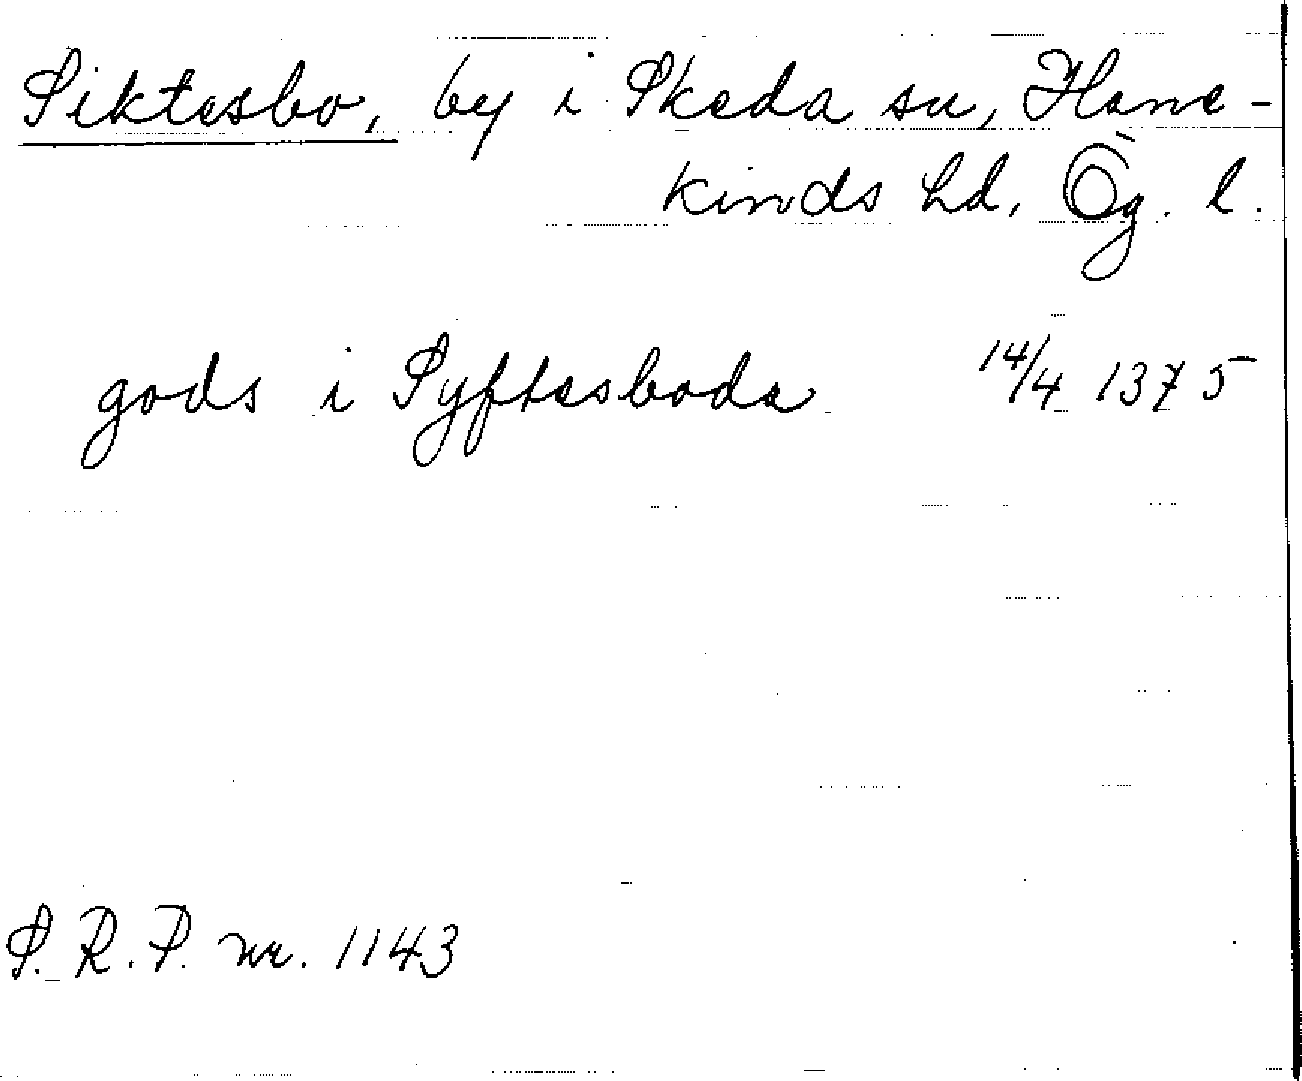 Siktesbo, by i Skeda sn, Hane-
kinds hd, Ög. l.
gods i Syftesboda 14/4 1375
S. R. P. nr. 1143